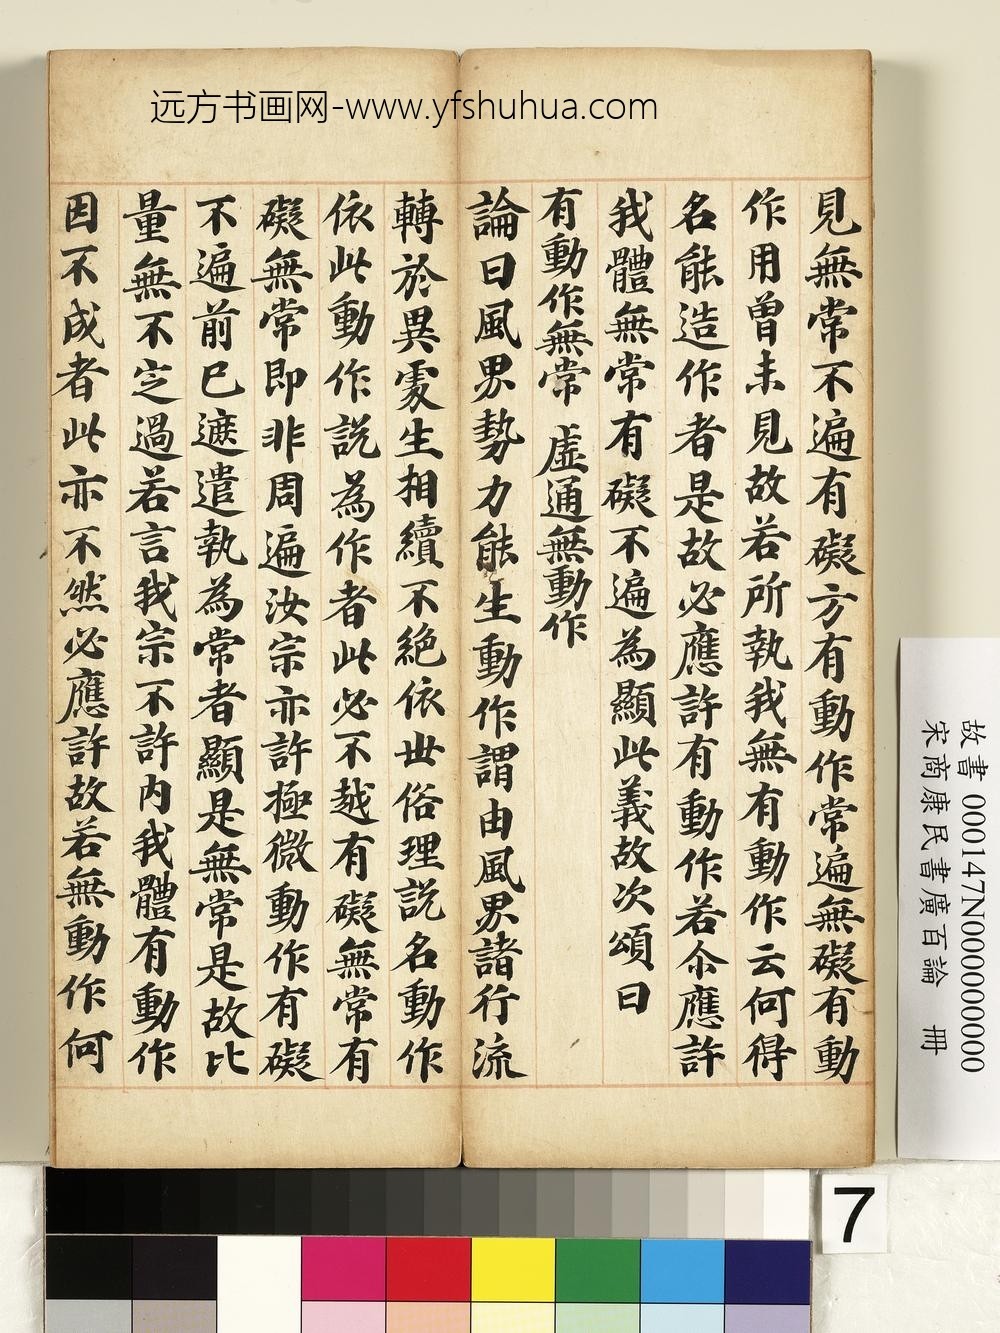 远方书画网-www.yfshuhua.com
見無常不遍有礙方有動作常遍無礙有動
作用曾未見故若所執我無有動作云何得
名能造作者是故必應許有動作若尒應許
我體無常有礙不遍為顯此義故次頌曰
有動作無常 虛通無動作
論曰風界勢力能生動作謂由風界諸行流
轉於異處生相續不絕依世俗理說名動作
依此動作說為作者此必不越有礙無常有
礙無常即非周遍汝宗亦許極微動作有礙
不遍前已遮遣執為常者顯是無常是故比
量無不定過若言我宗不許內我體有動作
因不成者此亦不然必應許故若無動作何
故書 000147N000000000
宋商康民書廣百論 冊
7